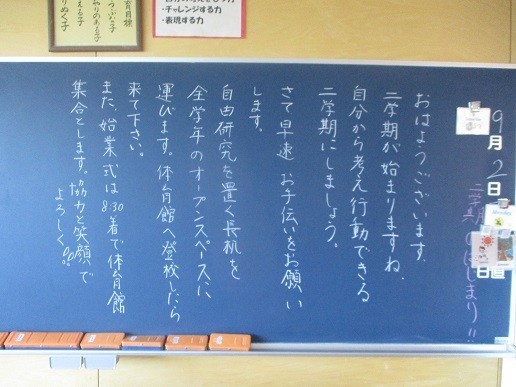 ・チャレンジする力
・表現する力
りぬく子
9月2日
二学期のはじまり!!
おはようございます。
二学期が始まりますね。
自分から考え行動できる
二学期にしましょう。
さて早速お手伝いをお願い
します。
自由研究を置く長机を
全学年のオープンスペースに
運びます。体育館へ登校したら
来て下さい。
また、始業式は8:30着で体育館
集合とします。協力と笑顔で
よろしく!!